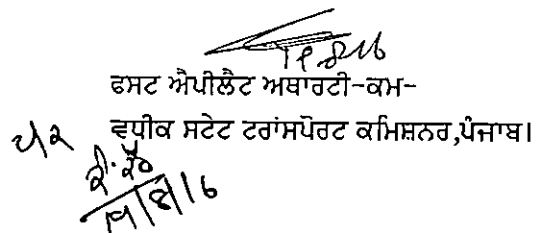 ਫਸਟ ਐਪੀਲੈਟ ਅਥਾਰਟੀ-ਕਮ-
ਵਧੀਕ ਸਟੇਟ ਟਰਾਂਸਪੋਰਟ ਕਮਿਸ਼ਨਰ,ਪੰਜਾਬ।
19/8/16